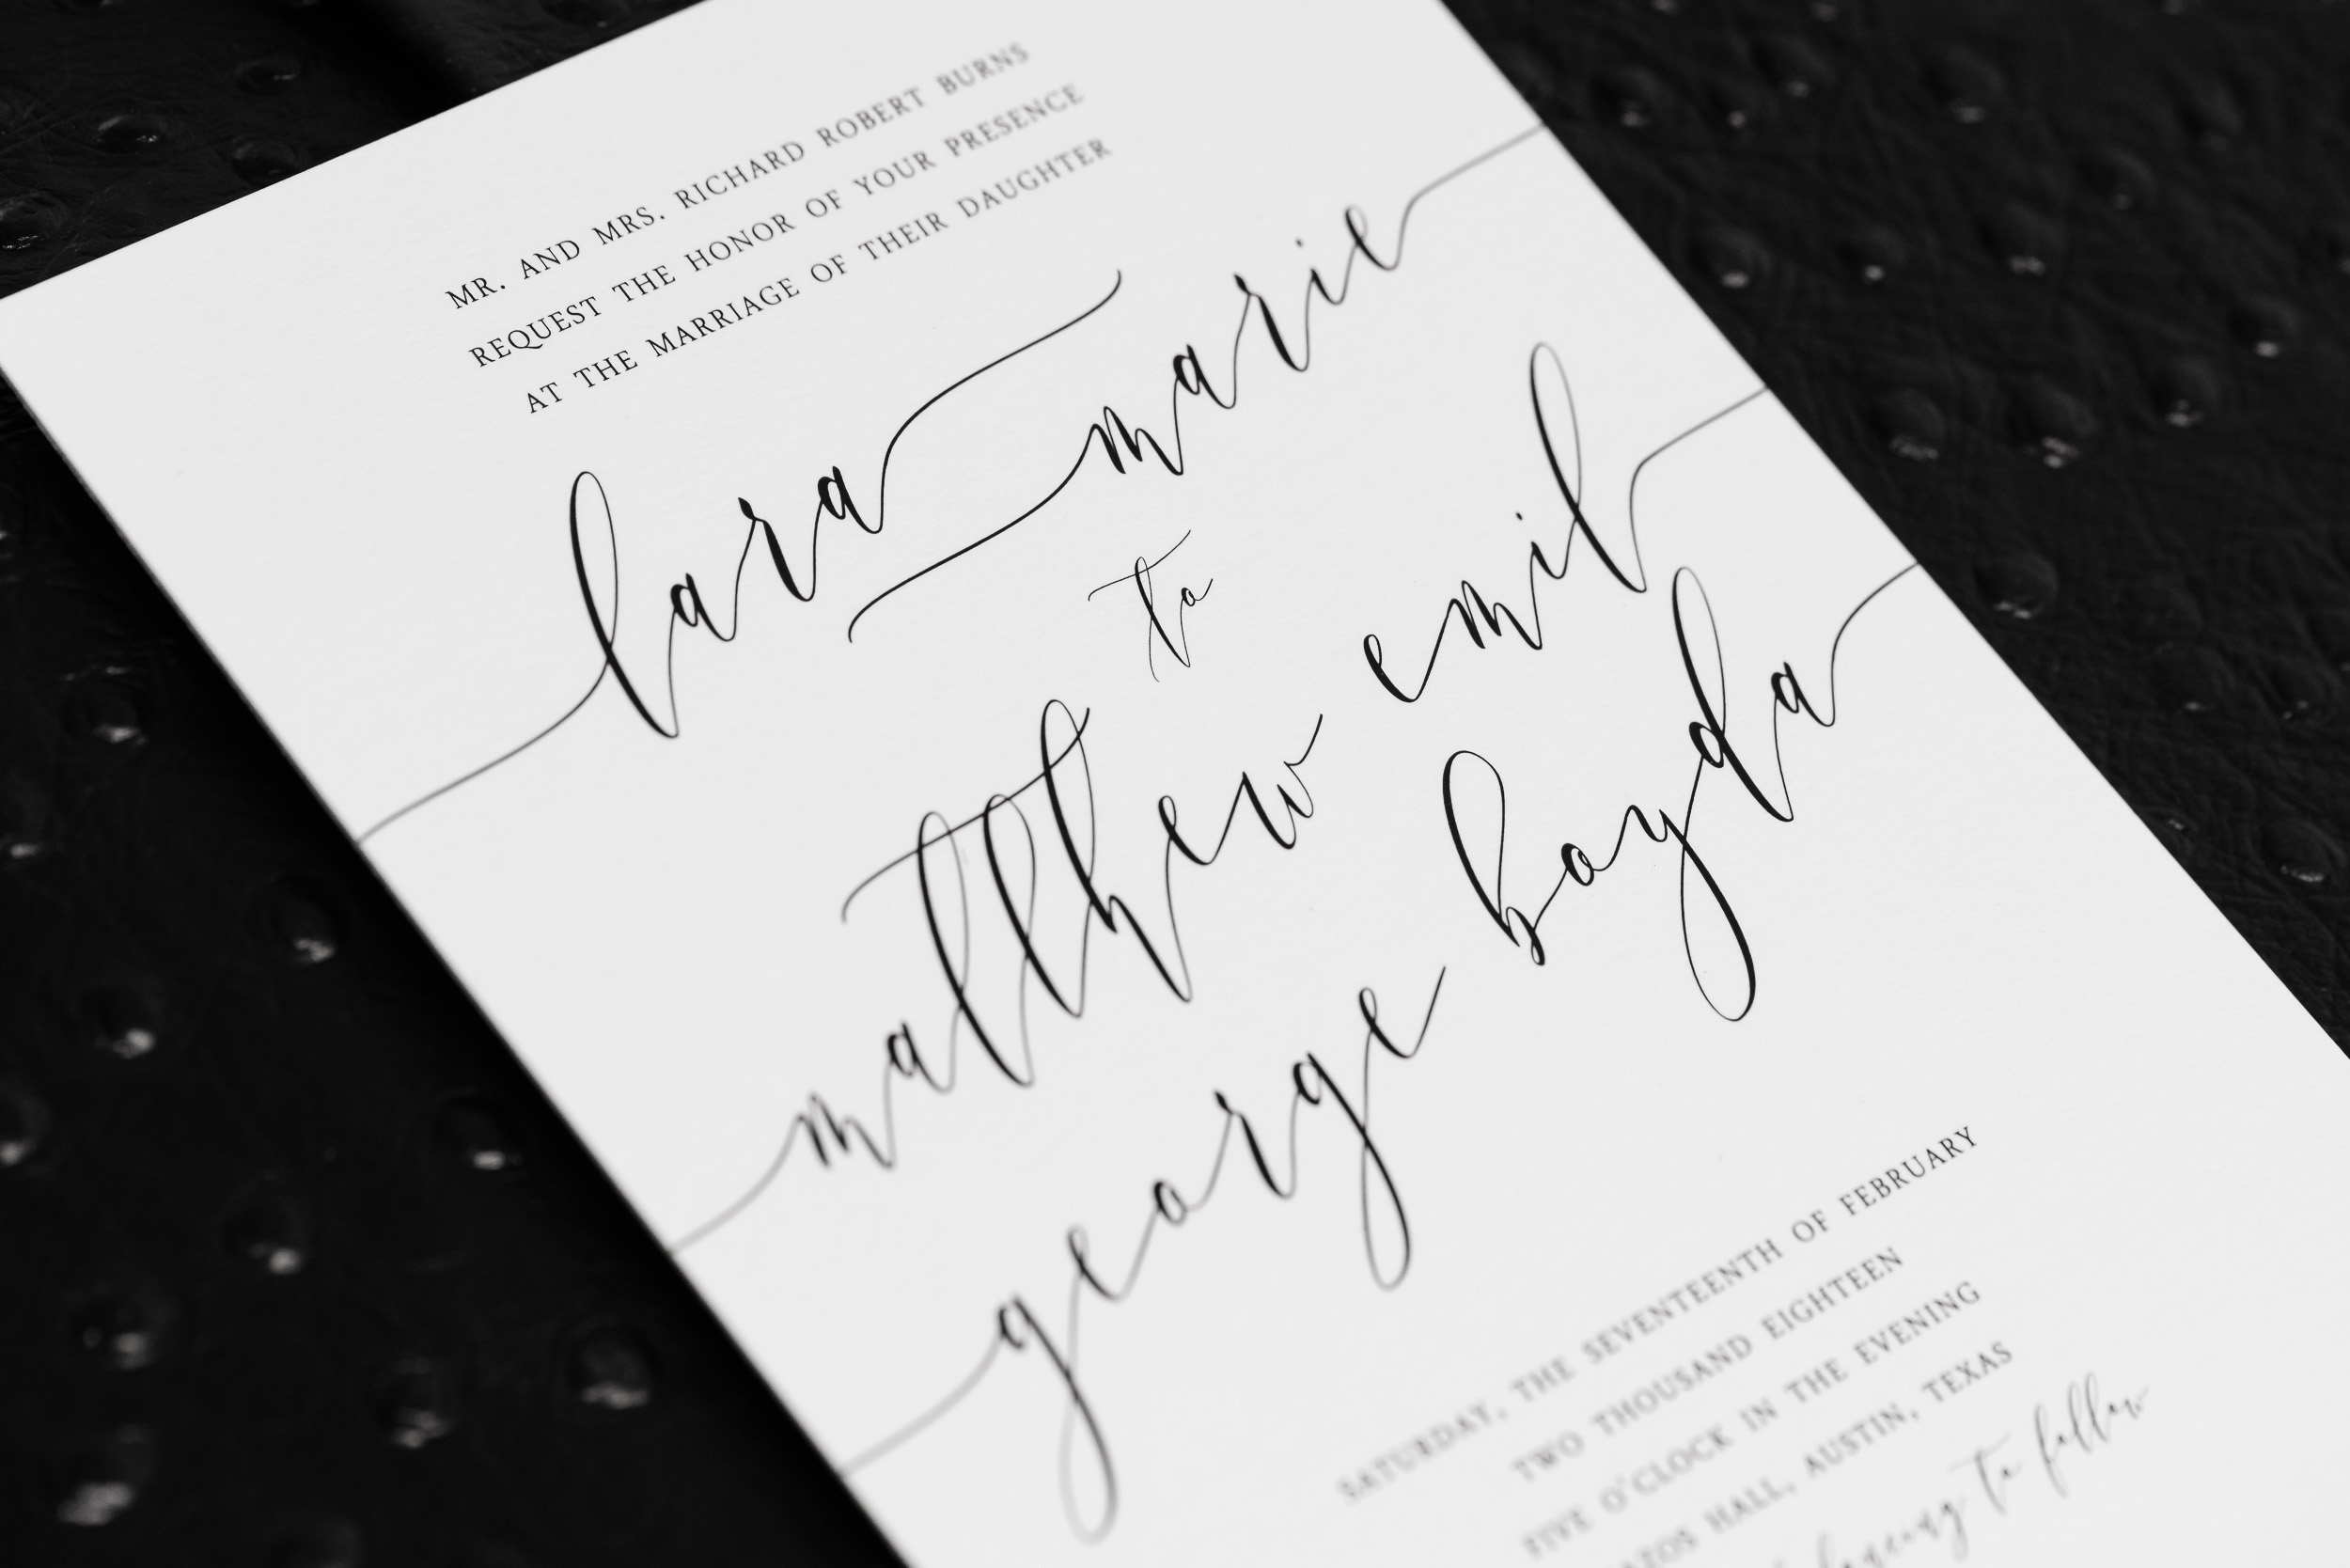 MR. AND MRS. RICHARD ROBERT BURNS
REQUEST THE HONOR OF YOUR PRESENCE
AT THE MARRIAGE OF THEIR DAUGHTER
lara marie
to
matthew emil
george boyda
SATURDAY, THE SEVENTEENTH OF FEBRUARY
TWO THOUSAND EIGHTEEN
FIVE O'CLOCK IN THE EVENING
HALL, AUSTIN, TEXAS
to follow